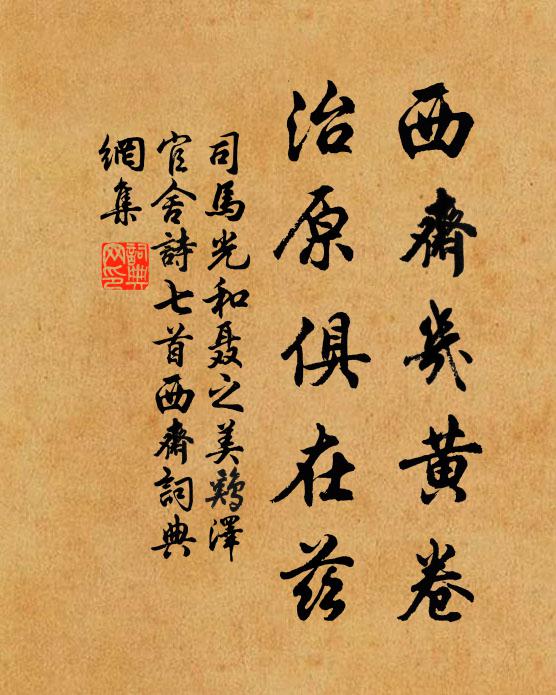 西齋幾黃卷
治原俱在茲
司馬光和聶之美鷄澤
官舍詩七首西齋詞典
網集
詞典網印